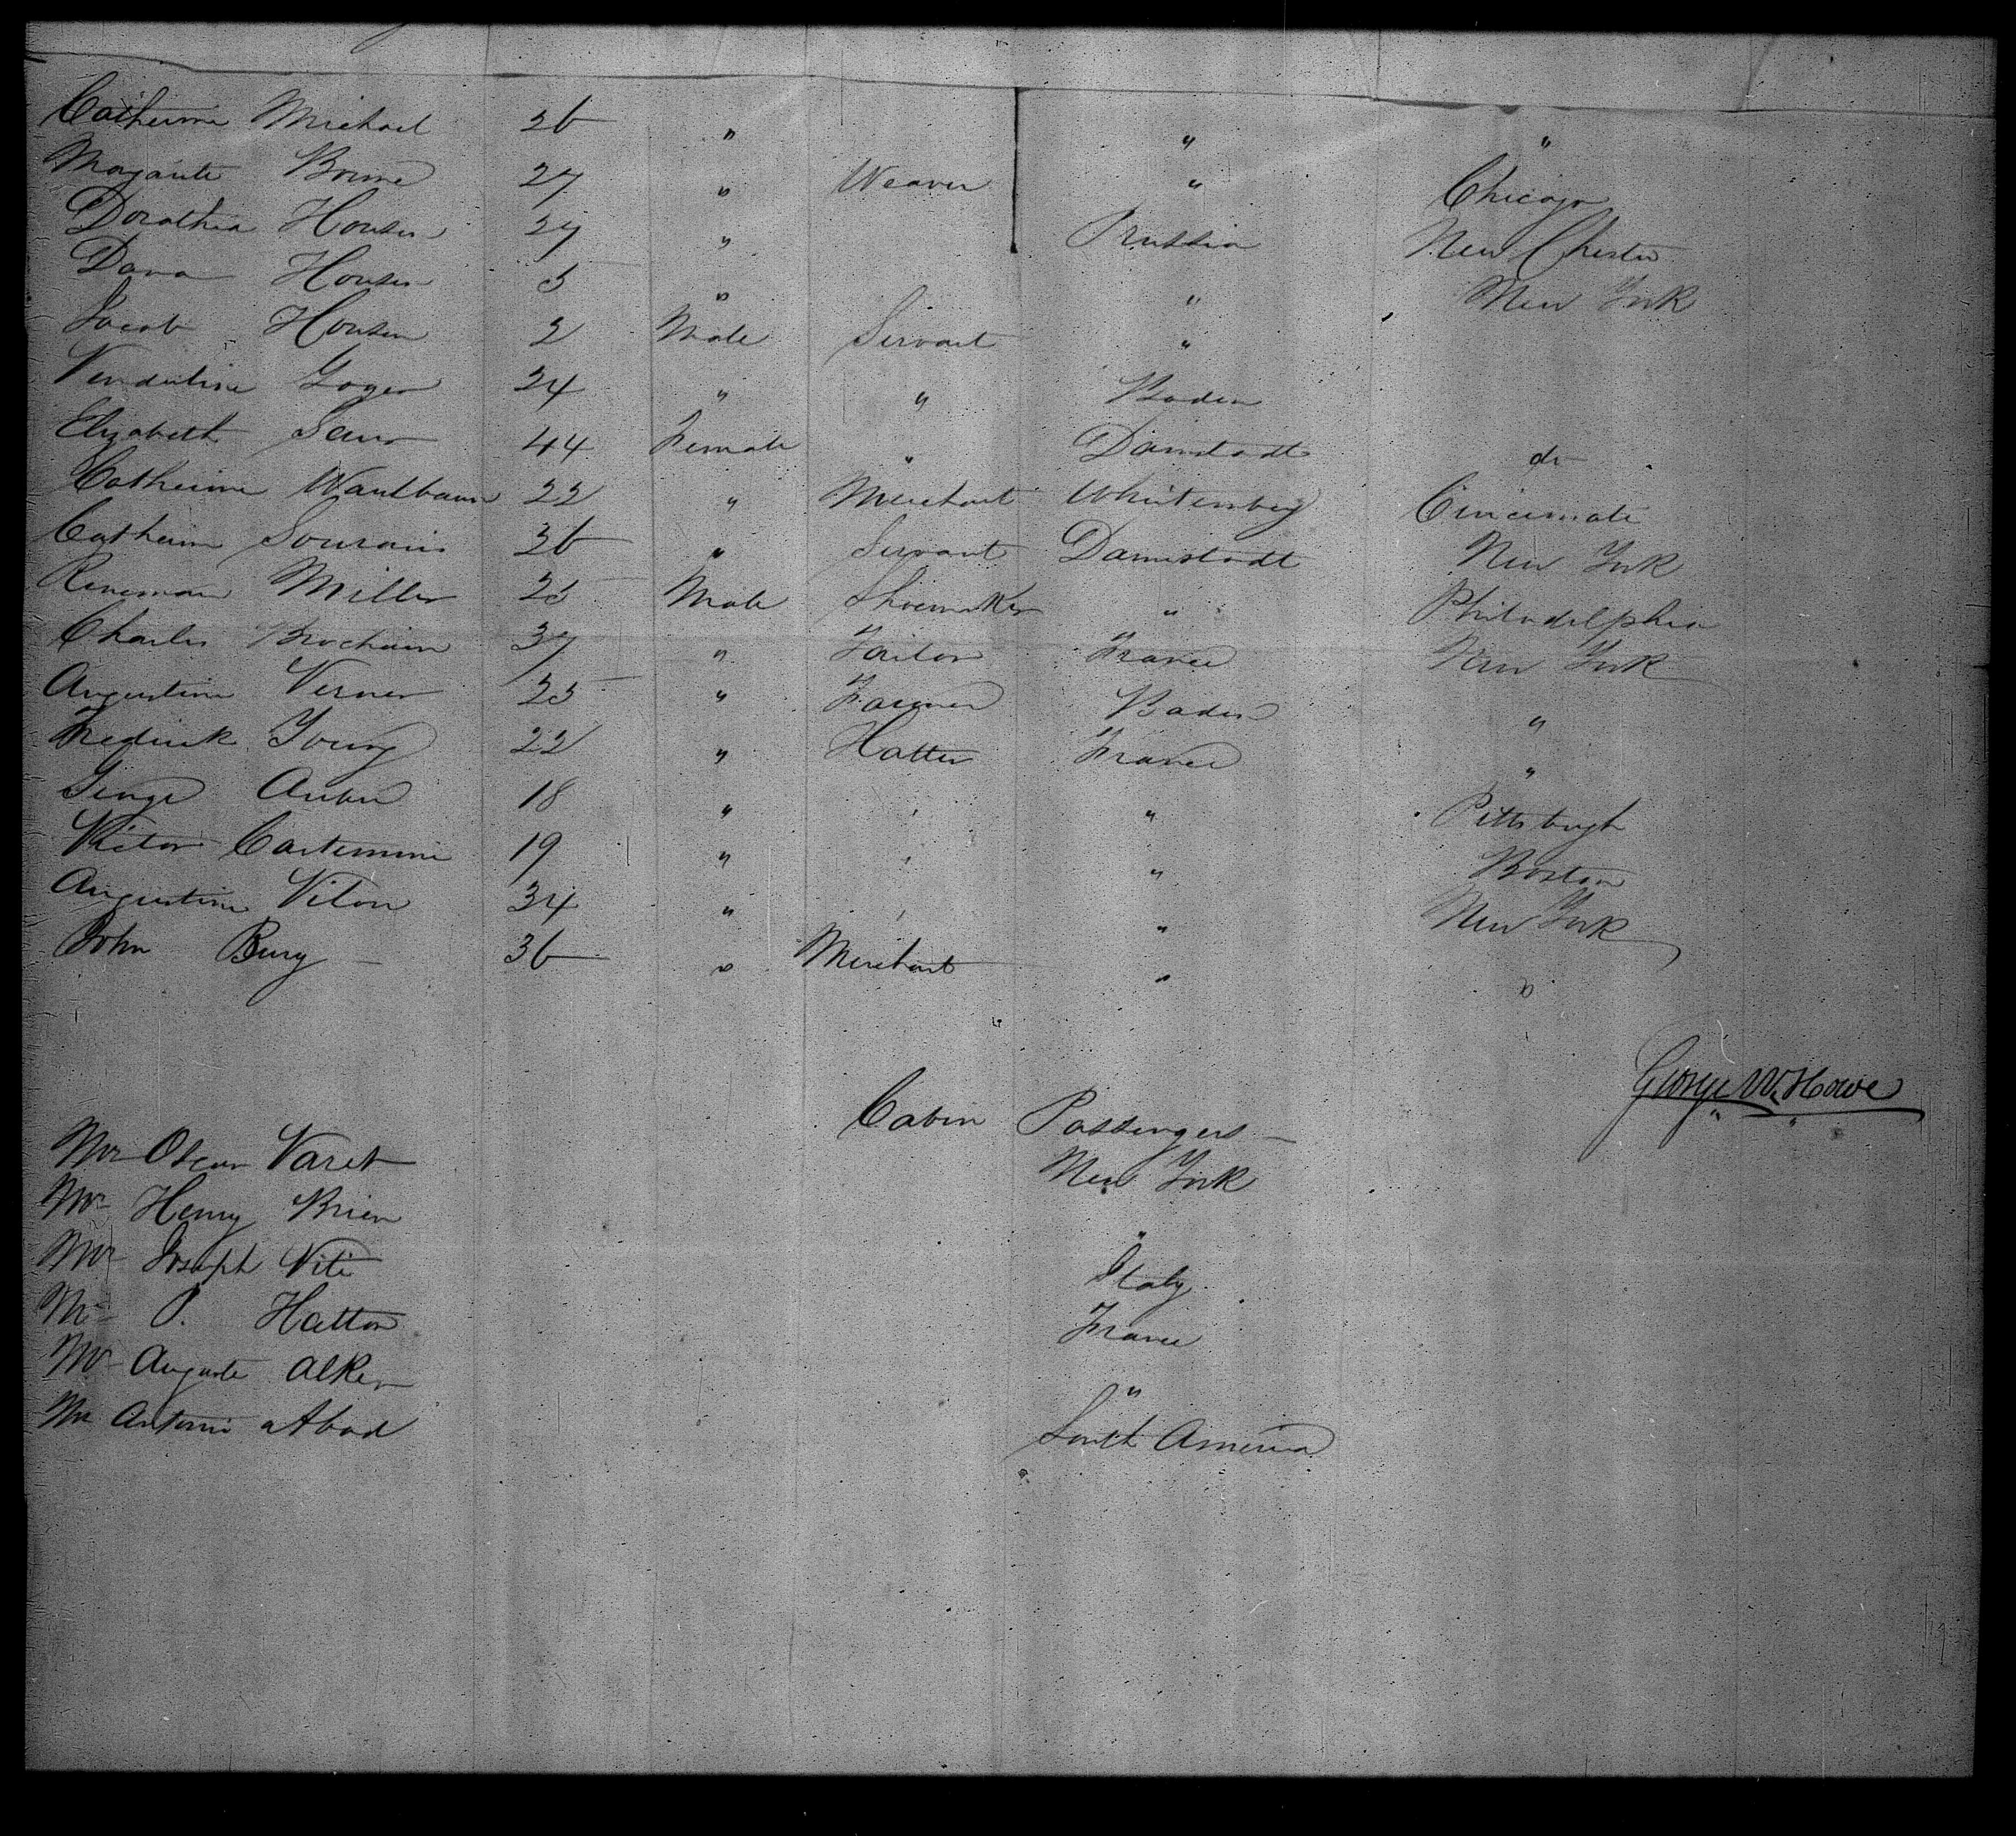 Catherine Michael 26 " " "
Margarite Brme 27 " Weaver " Chicago
Dorathea Houser 27 " Prussia New Chester
Dava Houser 5 " " New York
Jacob Houser 2 Male Servant "
Vendeline 24 " " Baden
Elizabeth 44 Female " Damstadt do
Catherine Waulbaum 22 " Merchant Whirtemberg Cincinnati
Catherine 36 " Servant Darmstadt New York
Miller 25 Male Shoemaker " Philadelphia
Charles 37 " Tailor France New York
Augustine Verner 25 " Farmer Baden "
Fredirick Young 22 " Hatter France "
18 " " " Pittsburgh
Victor 19 " " " Boston
Augustine Viton 34 " " " New York
John Bury 36 " Merchant " "
George W. Howe
Cabin Passengers
Mr Oscar Varet New York
Mr Henry Brien "
Mr Joseph Viti Italy
Mr P. Hatton France
Mr Auguste Alker "
Mr Antonio Abad South America